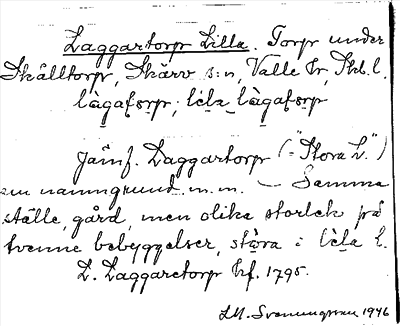 Laggartorp Lilla. Torp under
Skälltorp, Skärv s:n, Valle hr, Skb. l.
làgatorp; lela làgatorp
Jämf. Laggartorp (="Stora L.")
om namngrund m.m. — Samma
ställe, gård, men olika storlek på
tvenne bebyggelser, stora i lela L.
L. Laggaretorp hf. 1795.
LM. Svenungsson 1946